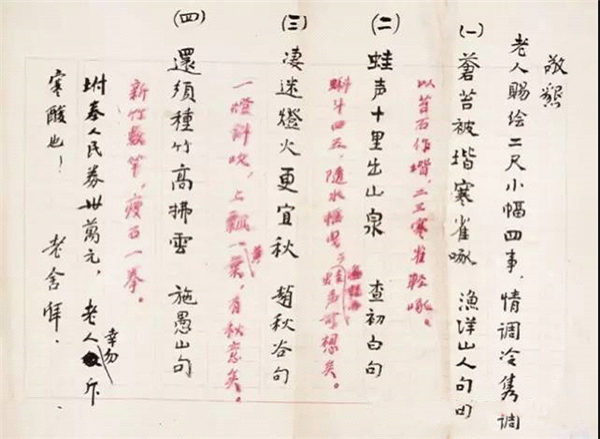 敬懇
老人賜绘二尺小幅四事，情调冷隽
(一) 蒼苔被堦寒雀啄 漁洋山人句
以苔石作堦，二三寒雀輕啄。
(二) 蛙声十里出山泉 查初白句
蝌斗四五，隨水摇曳；蛙声可想矣。
(三) 淒迷燈火更宜秋 趙秋谷句
一燈斜吹，上飄一黄葉，有秋意矣。
(四) 還須種竹高拂雲 施愚山句
新竹數竿，瘦石一拳。
坿奉人民券卅萬元，老人幸勿斥
寒酸也！ 老舍拜.